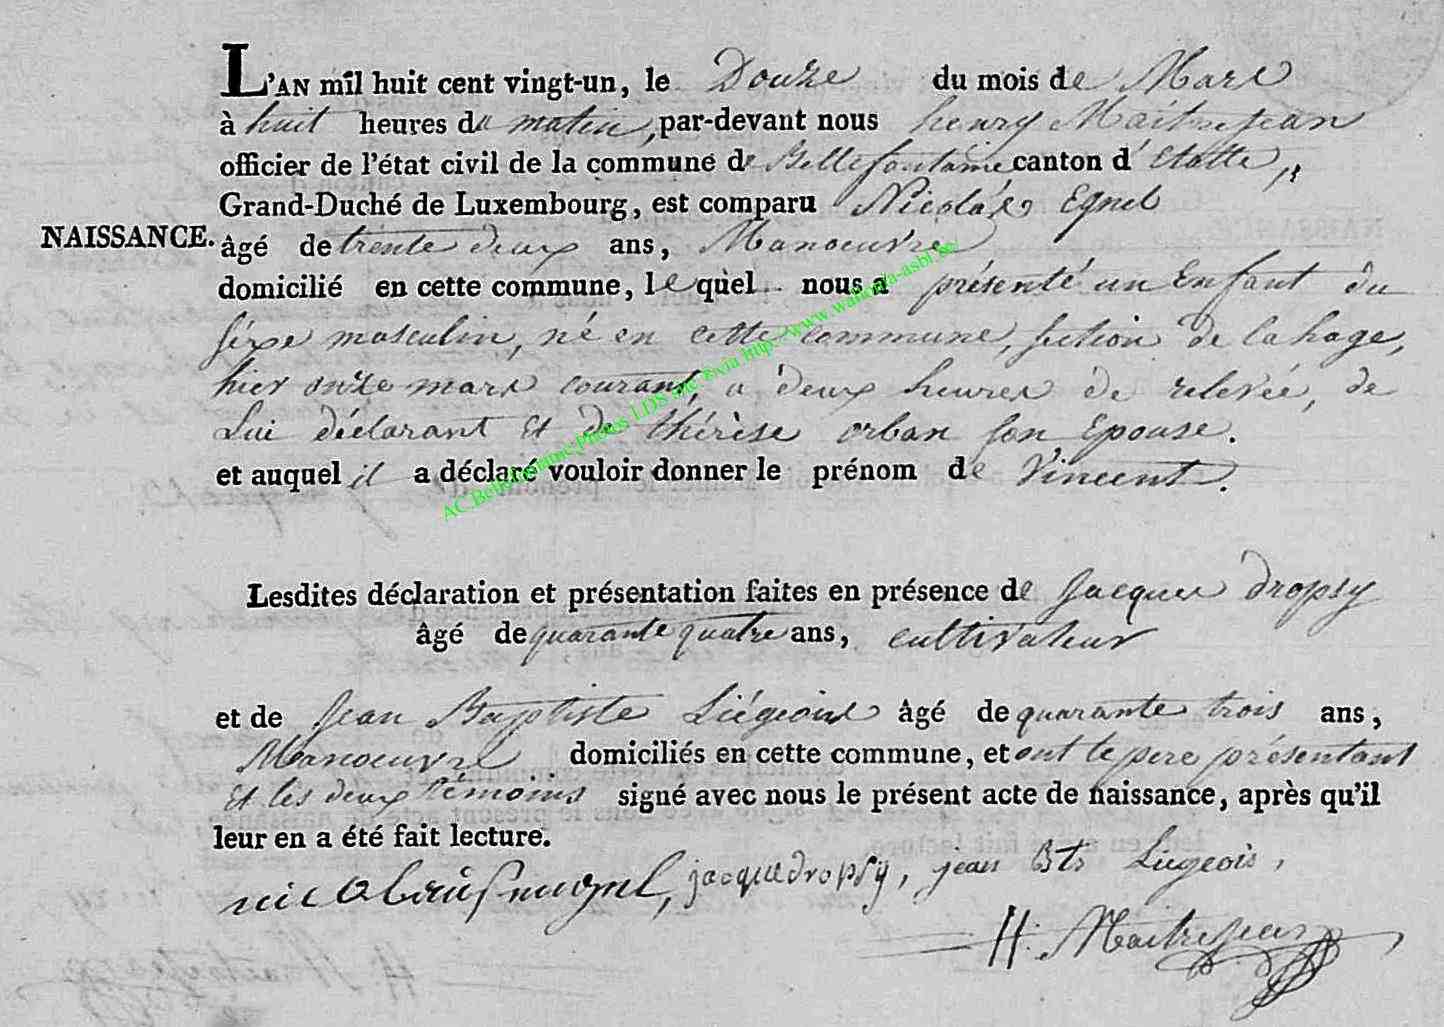 L'AN mîl huit cent vingt-un, le Douze du mois de Mars
à huit heures du matin, par-devant nous henry Maitrejean
officier de l'état civil de la commune de Bellefontaine canton d'Etalle,
Grand-Duché de Luxembourg, est comparu Nicolas Egnel
NAISSANCE.
âgé de trente deux ans, Manoeuvre
domicilié en cette commune, lequel nous a présenté un Enfant du
séxe masculin, né en cette commune, section de lahage,
hier onze mars courant, a deux heures de relevée, de
Lui déclarant Et de thérèse orban son Epouse.
et auquel il a déclaré vouloir donner le prénom de Vincent.
Lesdites déclaration et présentation faites en présence de Jacques dropsy
âgé de quarante quatre ans, cultivateur
et de Jean Baptiste Liégeois âgé de quarante trois ans,
Manoeuvre domiciliés en cette commune, et ont le pere présentant
Et les deux témoins signé avec nous le présent acte de naissance, après qu'il
leur en a été fait lecture.
jacque dropsy, jean Bte Liegeois,
H. Maitrejean
AC.Bellefontaine;Photos LDS inc. & via http://www.wallonia-asbl.be/